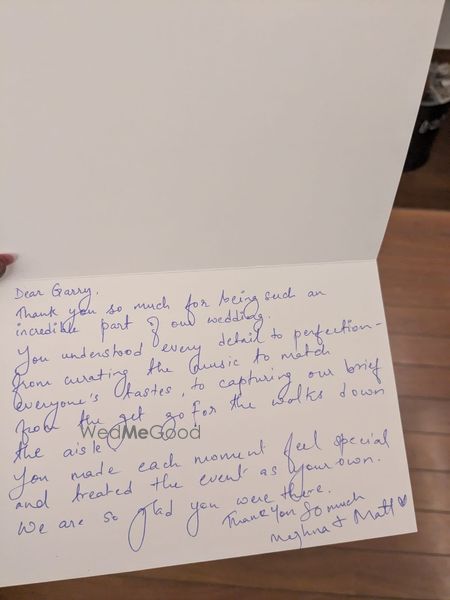 Dear Garry,
Thank you so much for being such an
incredible part of our wedding.
You understood every detail to perfection -
from curating the music to match
everyone's tastes, to capturing our brief
from the get go for the walks down
the aisle.
WedMeGood
You made each moment feel special
and treated the event as your own.
We are so glad you were there.
Thank you so much
Meghna + Matt ♥